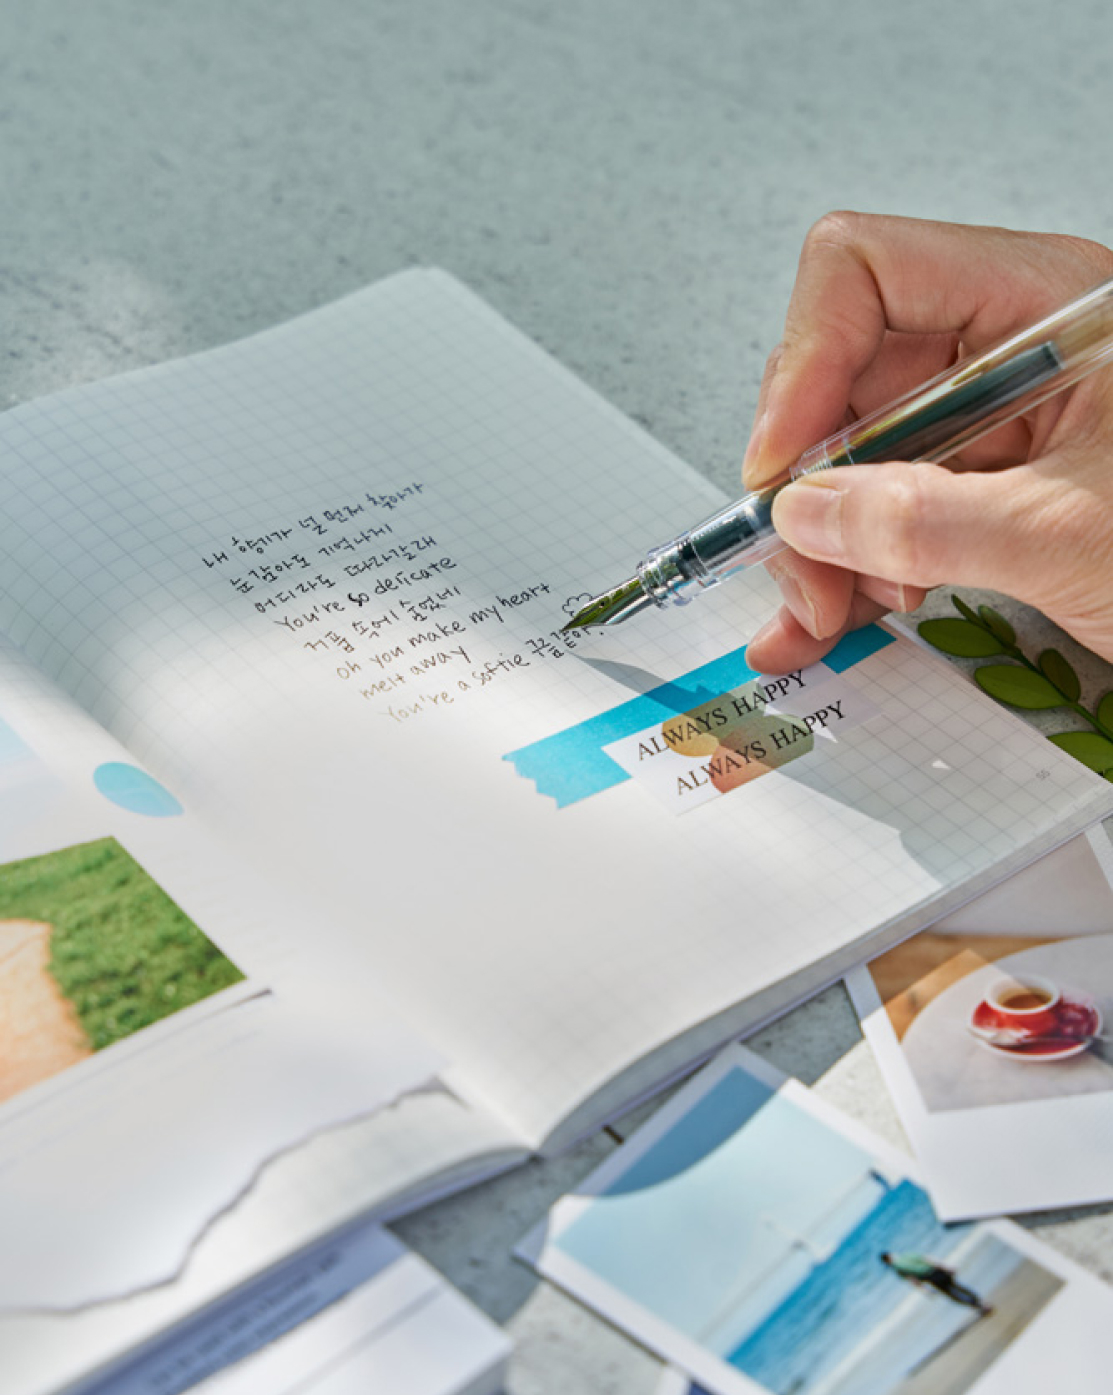 내 향기가 널 먼저 찾아가
눈감아도 기억나게
어디라도 따라갈래
You're so delicate
거품 속에 숨었네
oh you make my heart
melt away
You're a softie
ALWAYS HAPPY
ALWAYS HAPPY
50